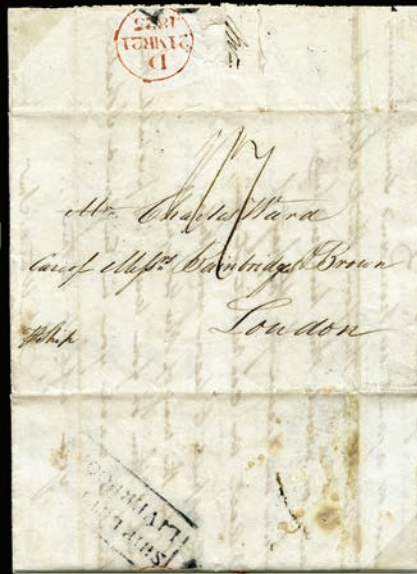 D
21MR21
17
Mr. Charles Ward
Care of Messrs. Bainbridges Brown
London
Ship
SHIP LETTER
LIVERPOOL